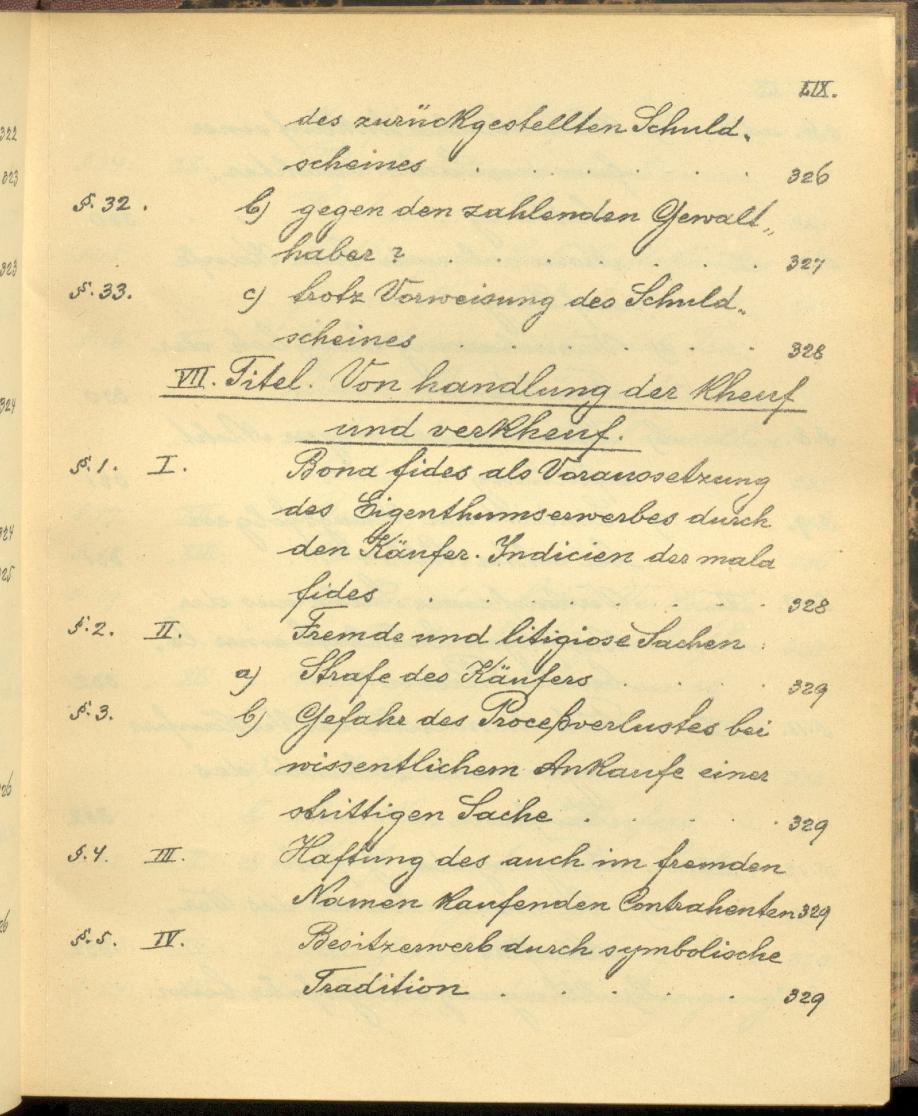 LIX.
des zurückgestellten Schuld„
scheines . . . . . 326
§. 32. b) gegen den zahlenden Gewalt„
haber ? . . . . . 327
§. 33. c) trotz Vorweisung des Schuld„
scheines . . . . . 328
VII. Titel. Von handlung der Kheuf
und verkheuf.
§. 1. I. Bona fides als Voraussetzung
des Eigenthumserwerbes durch
den Käufer. Indicien der mala
fides . . . . . 328
§. 2. II. Fremde und litigiose Sachen :
a) Strafe des Käufers . . . . 329
§. 3. b) Gefahr des Proceßverlustes bei
wissentlichem Ankaufe einer
strittigen Sache . . . . 329
§. 4. III. Haftung des auch im fremden
Namen kaufenden Contrahenten 329
§. 5. IV. Besitzerwerb durch symbolische
Tradition . . . . . 329
322
323
323
324
324
325
326
326